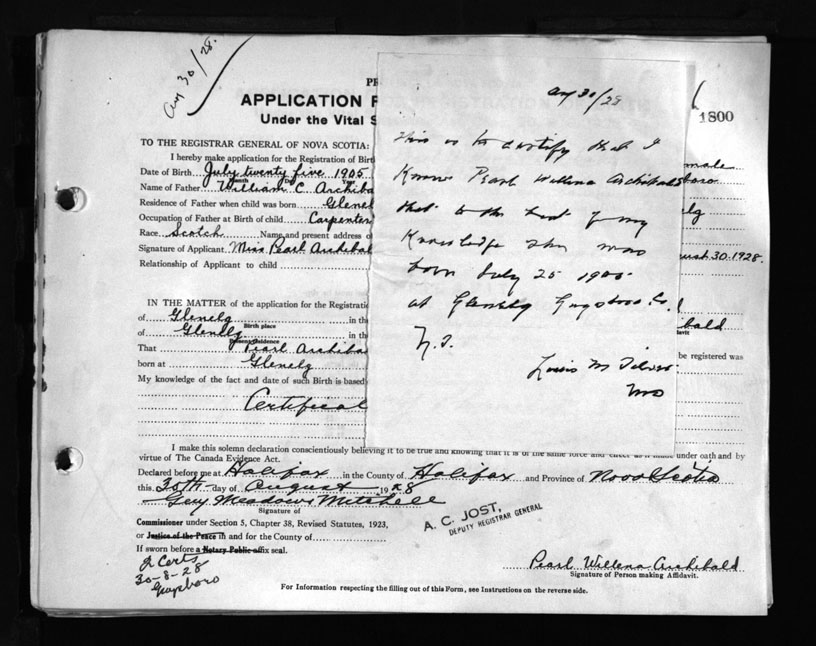 Aug 30/28.
PR
APPLICATION F
Under the Vital S
1800
TO THE REGISTRAR GENERAL OF NOVA SCOTIA:
I hereby make application for the Registration of Birt
Date of Birth July twenty five 1905
male
Name of Father William C. Archiba
boro
Residence of Father when child was born Glenel
elg
Occupation of Father at Birth of child Carpenter
Race Scotch Name and present address o
Signature of Applicant Miss Pearl Archibal
ust 30. 1928.
Relationship of Applicant to child
IN THE MATTER of the application for the Registratio
of Glenelg in the
Birth place
of Glenelg in the
bald
Present Residence
davit
That Pearl Archiba
be registered was
born at Glenelg
My knowledge of the fact and date of such Birth is based
Certificat
Aug 30/28
This is to certify that I
know Pearl Willena Archibald
that to the best of my
knowledge she was
born July 25 1905
at Glenelg Guysboro Co.
N.S.
Louis M
MD
I make this solemn declaration conscientiously believing it to be true and knowing that it is of the same force and effect as if made under oath and by
virtue of The Canada Evidence Act.
Declared before me at Halifax in the County of Halifax and Province of Nova Scotia
this 30th day of August 1928
Guy Meadows Mitchell
Signature of
Commissioner under Section 5, Chapter 38, Revised Statutes, 1923,
or Justice of the Peace in and for the County of
If sworn before a Notary Public affix seal.
A. C. JOST,
DEPUTY REGISTRAR GENERAL
2 Certs
30-8-28
Guysboro
Pearl Willena Archibald
Signature of Person making Affidavit.
For Information respecting the filling out of this Form, see Instructions on the reverse side.